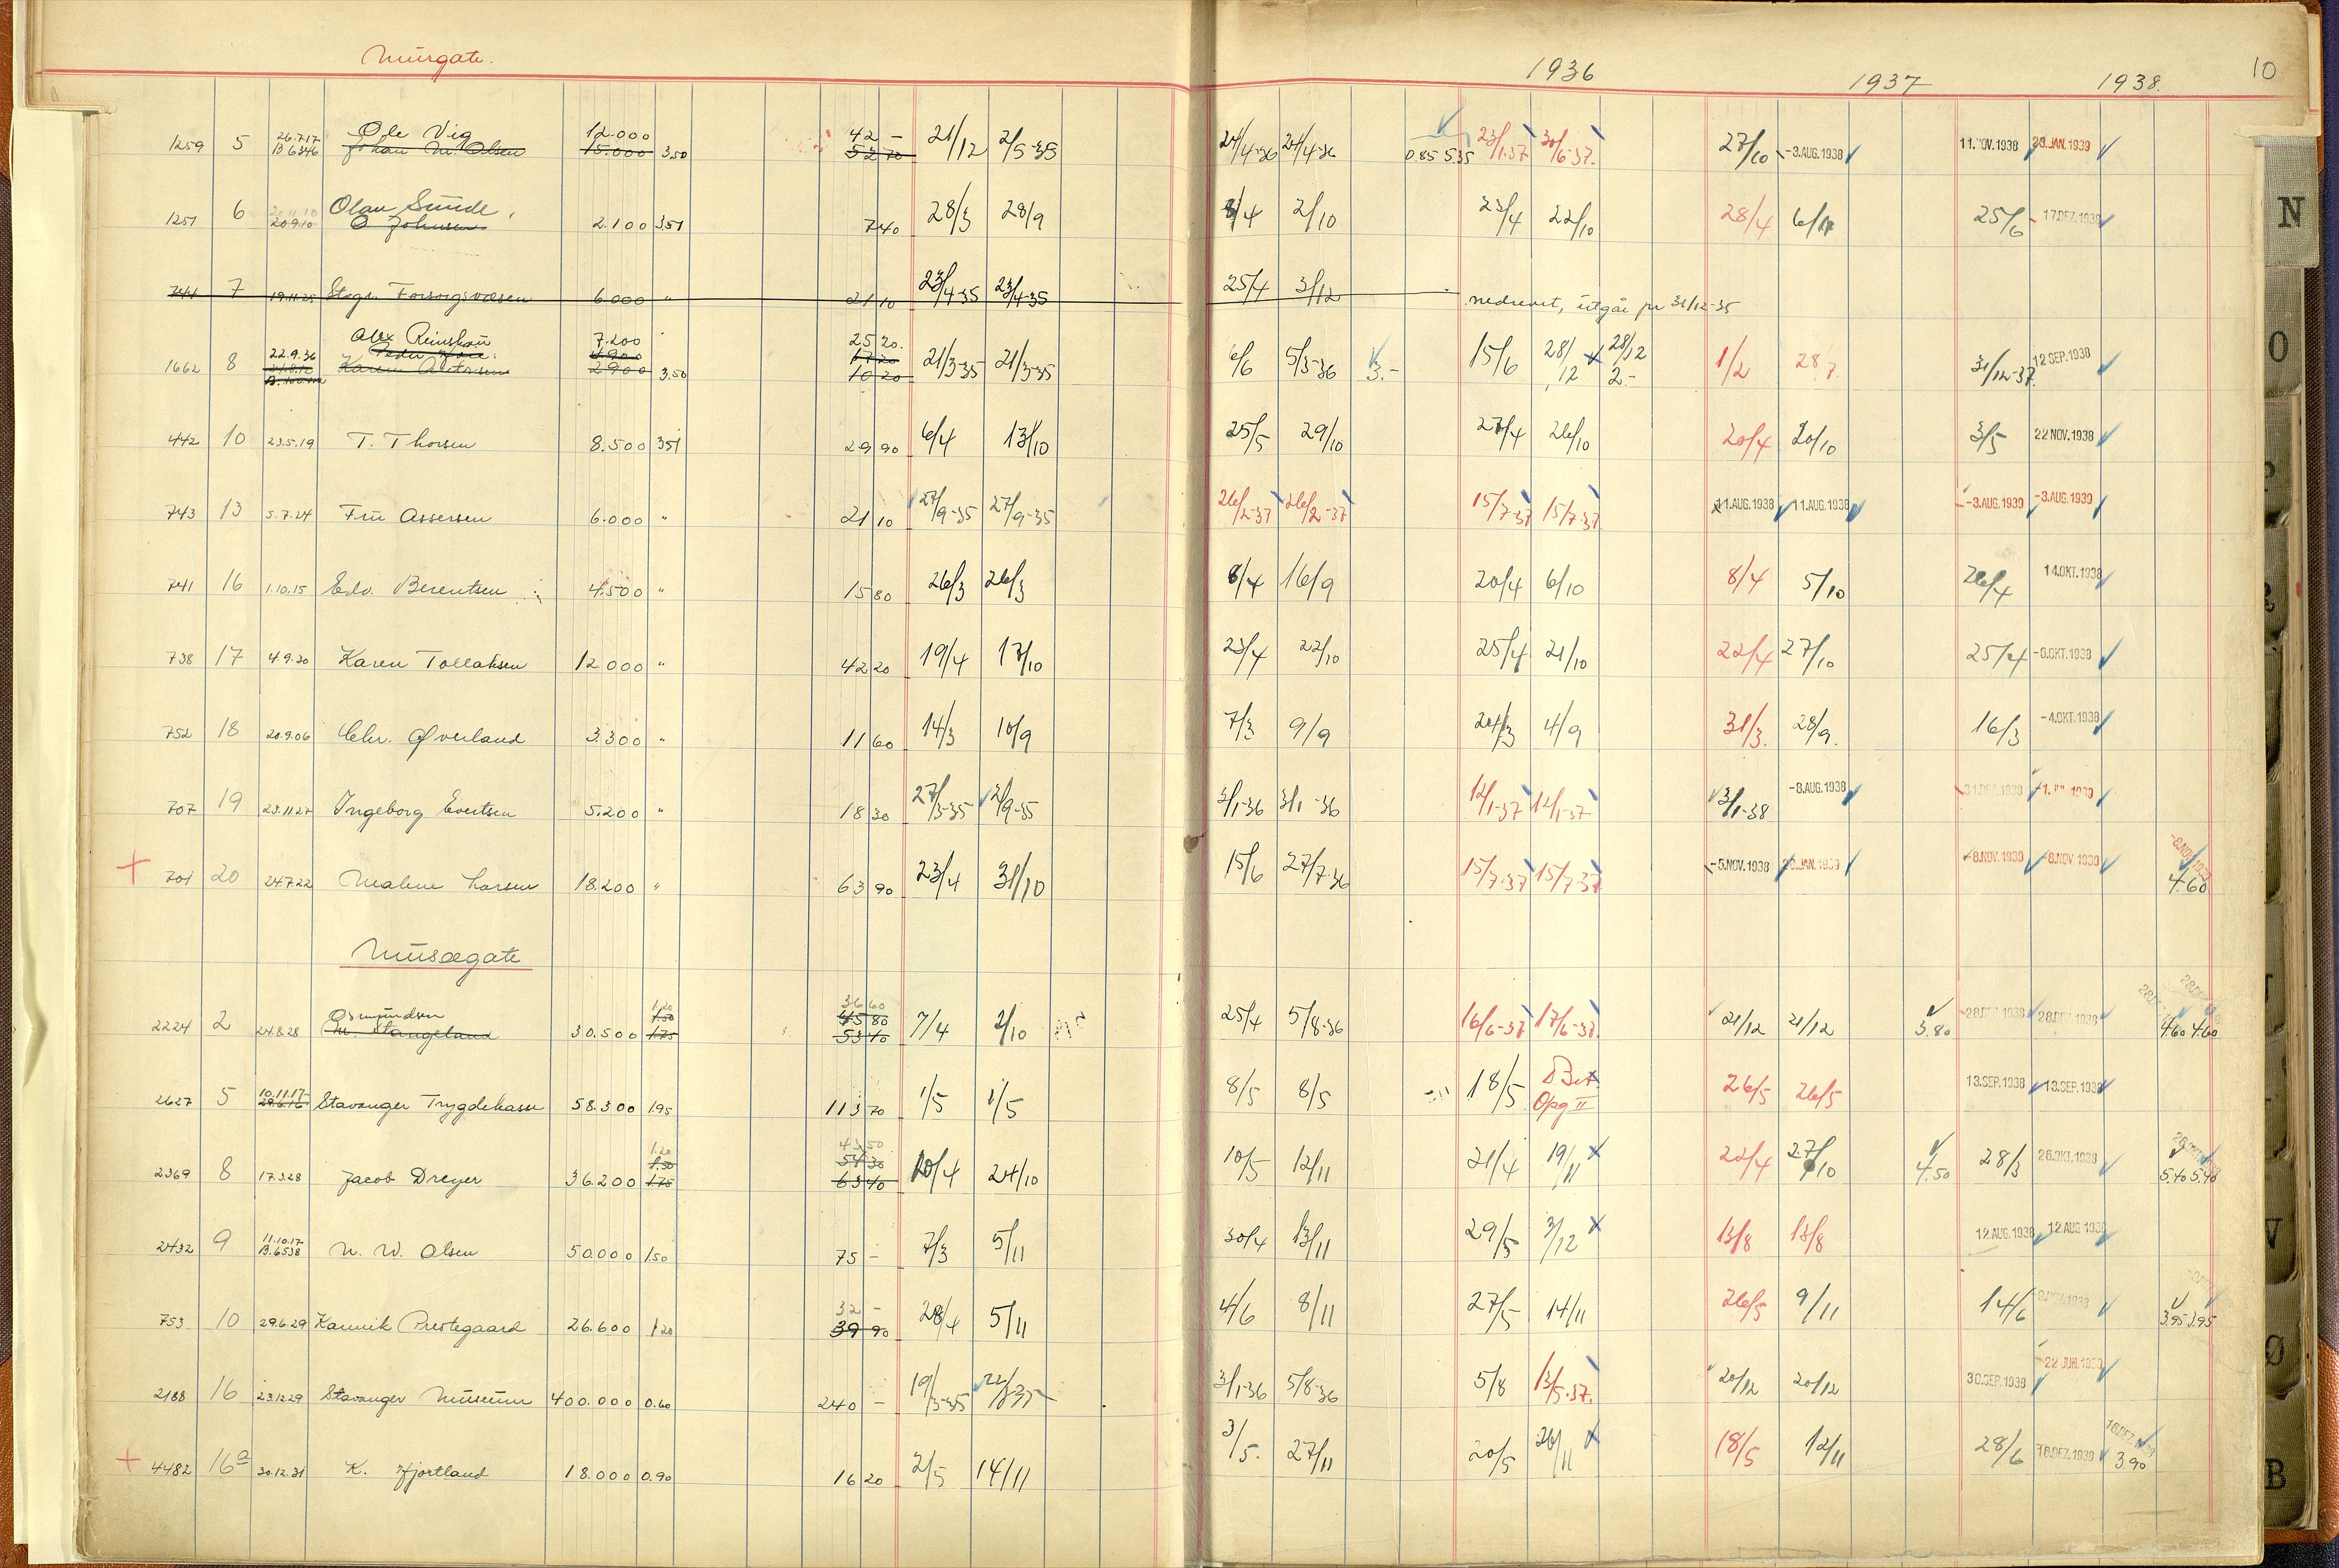 Murgate.
1936 1937 1938. 10
1259 5 26.7.17 B 6346 Ole Vig 12.000 42 - 21/12 2/5-35 24/4-36 24/4-36 0.85 5.35 23/1.37 30/6-37. 27/10 -3.AUG.1938 11.NOV.1938 23.JAN.1939
Johan M. Olsen 15.000 3.50 52 70
1251 6 20.9.10 Olav Sunde 2.100 3.51 7 40 28/3 28/9 8/4 2/10 23/4 22/10 28/4 6/11 25/6 17.DEZ.1938
O Johnsen
744 7 19.11.25 Stvgr. Forsorgsvæsen 6.000 " 21 10 23/4-35 23/4-35 25/4 3/12 nedrevet, utgår pr 31/12-35
1662 8 22.9.36 Alex Reinskau 7.200 25 20. 21/3-35 21/3-35 6/6 5/3-36 3.- 15/6 28/12 28/12 2.- 1/2 28/7 31/12-37. 12 SEP.1938
4900 17 20
Karen 2900 3.50 10 20
442 10 23.5.19 T. Thorsen 8.500 3.51 29 90 6/4 13/10 25/5 29/10 27/4 26/10 20/4 20/10 3/5 22 NOV.1938
743 13 5.7.24 Fru Assersen 6.000 " 21 10 27/9-35 27/9-35 26/2-37 26/2-37 15/7-37 15/7-37 11.AUG.1938 11.AUG.1938 -3.AUG.1939 -3.AUG.1939
741 16 1.10.15 Edv. Berentsen 4.500 " 15 80 26/3 26/3 8/4 16/9 20/4 6/10 8/4 5/10 26/4 14.OKT.1938
738 17 4.9.20 Karen Tollaksen 12.000 " 42 20 19/4 17/10 23/4 22/10 25/4 21/10 22/4 27/10 25/4 -6.OKT.1938
752 18 20.9.06 Chr. Øverland 3.300 " 11 60 14/3 10/9 7/3 9/9 24/3 4/9 31/3. 28/9. 16/3 -4.OKT.1938
707 19 23.11.27 Ingeborg Evertsen 5.200 " 18 30 27/3-35 2/9-35 3/1-36 3/1-36 12/1-37 12/1-37 3/1-38 -8.AUG.1938 31.DEZ.1938
701 20 24.7.22 Malene Larsen 18.200 " 63 90 23/4 31/10 15/6 27/7-36 15/7-37 15/7-37 -5.NOV.1938 23.JAN.1939 -8.NOV.1939 -8.NOV.1939 -8.NOV.1939 4.60
Musægate
2224 2 24.8.28 Osmundsen 30.500 1.20 36 60 7/4 2/10 25/4 5/8-36 16/6-37 17/6-37. 21/12 21/12 3.80 4.60 4.60
M. Stangeland 1.50 45 80
1.75 53 40
2627 5 10.11.17 29.6.16 Stavanger Trygdekasse 58.300 1.95 113 70 1/5 1/5 8/5 8/5 18/5 Opg II 26/5 26/5 13.SEP.1938 13.SEP.1938
2369 8 17.3.28 Jacob Dreyer 36.200 1.20 43 50 20/4 24/10 10/5 12/11 21/4 19/11 22/4 27/10 4.50 28/3 26.OKT.1938 5.40 5.40
1.50 54 30
1.75 63 40
2432 9 11.10.17 B.6538 N. W. Olsen 50.000 1.50 75 - 7/3 5/11 30/4 13/11 29/5 3/12 13/8 13/8 12.AUG.1938 12.AUG.1938
753 10 29.6.29 Kannik Prestegaard 26.600 1.20 32 - 28/4 5/11 4/6 8/11 27/5 14/11 26/5 9/11 14/6 3.95 3.95
39 90
2188 16 23.12.29 Stavanger Museum 400.000 0.60 240 - 19/3-35 3/1-36 5/8-36 5/8 13/5-37. 20/12 20/12 30.SEP.1938 -22 JUN.1939
4482 16a 30.12.31 K. Hjortland 18.000 0.90 16 20 2/5 14/11 3/5. 27/11 20/5 26/11 18/5 12/11 28/6 16.DEZ.1938 16.DEZ.1938 3.90
N
O
V
Ø
B